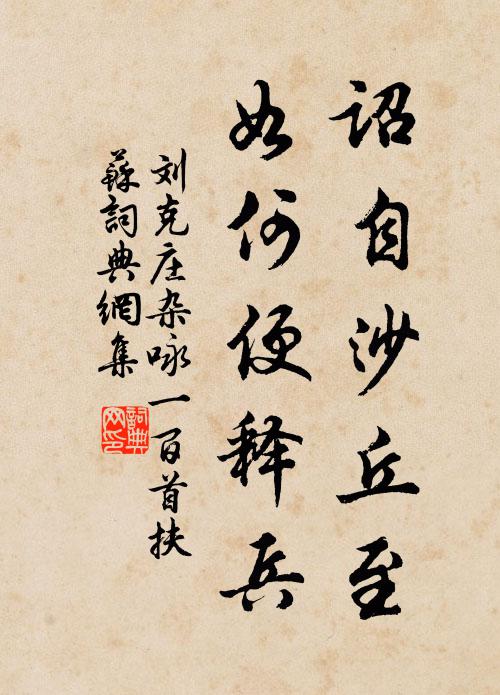 詔自沙丘至
如何便释兵
刘克庄杂咏一百首扶
蘇詞典網集
詞典网印